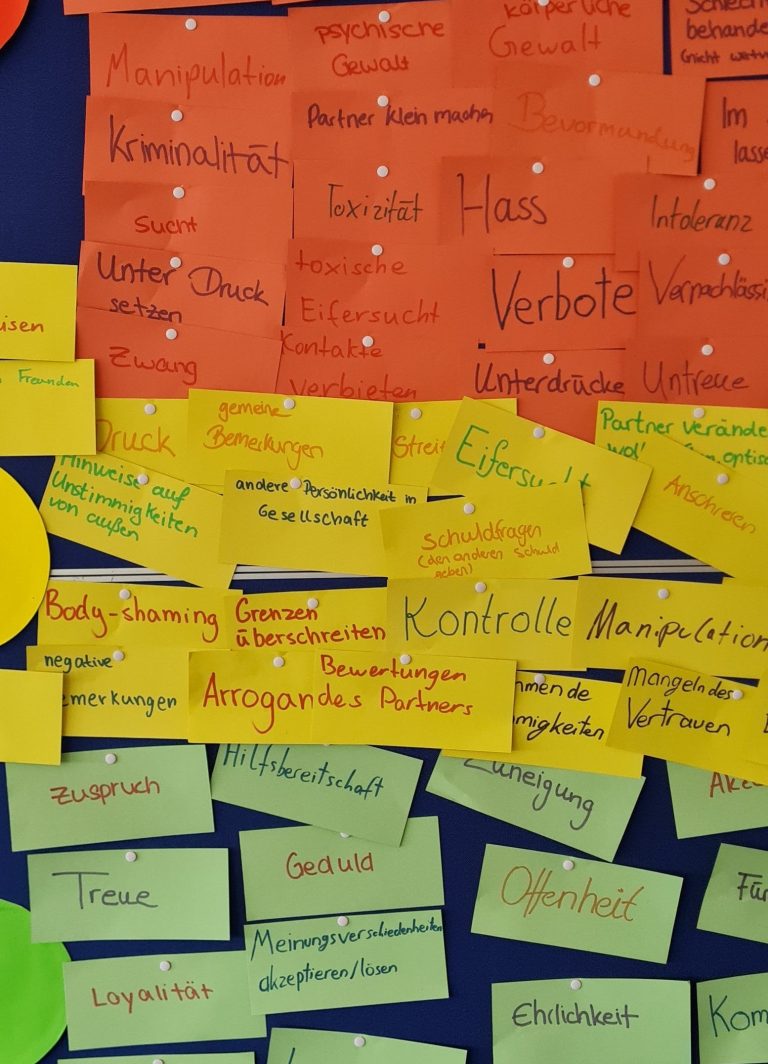 Manipulation
psychische
Gewalt
körperliche
Gewalt
behande
Kriminalität
Partner klein machen
Bevormundung
Im
lasse
Sucht
Toxizität
Hass
Intoleranz
Unter Druck
setzen
toxische
Eifersucht
Verbote
Vernachlässi
Zwang
Kontakte
verbieten
Unterdrücke
Untreue
isen
Freunden
Druck
gemeine
Bemerkungen
Streit
Eifersucht
Partner verände
optisc
Hinweise auf
Unstimmigkeiten
von außen
andere Persönlichkeit in
Gesellschaft
Schuldfragen
(den anderen Schuld
geben)
Anschreien
Body-shaming
Grenzen
überschreiten
Kontrolle
Manipulation
negative
emerkungen
Arrogan
Bewertungen
des Partners
hmende
migkeiten
Mangelndes
Vertrauen
Zuspruch
Hilfsbereitschaft
Zuneigung
Akze
Treue
Geduld
Offenheit
Für
Meinungsverschiedenheiten
akzeptieren/lösen
Loyalität
Ehrlichkeit
Kom